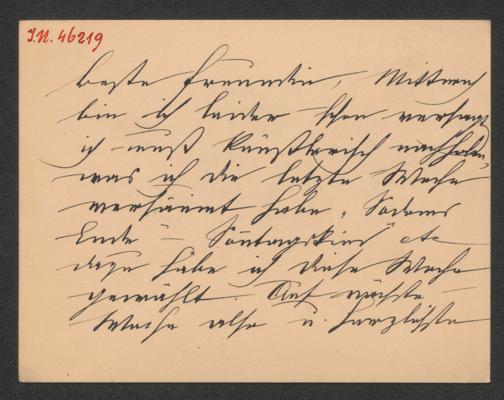 I.N. 46219
beste Freundin, Mittwoch
bin ich leider schon versagt
ich muß künstlerisch nachholen,
was ich die letzte Woche
versäumt habe. Sodoms
Ende – Sontagskind etc
dazu habe ich diese Woche
gewählt. Auf nächste
Woche also u. herzlichste